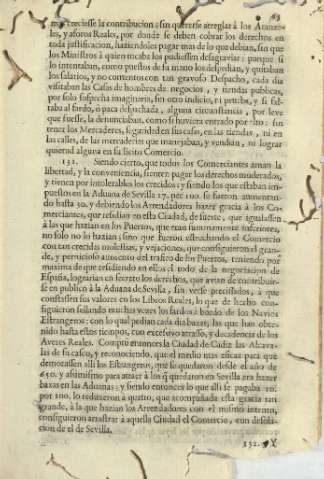 63
mas creciesse la contribucion: sin quererse arreglar à los Aranze-
les, y aforos Reales, por donde se deben cobrar los derechos en
toda justificacion, haziendoles pagar mas de lo que debian, sin que
los Ministros à quien tocaba los pudiessen desagraviar: porque si
lo intentaban, como puestos de su mano los despedian, y quitaban
los salarios, y no contentos con tan gravoso Despacho, cada dia
visitaban las Casas de hombres de negocios, y tiendas publicas,
por solo sospecha imaginaria, sin otro indicio, ni prueba, y si fal-
taba al fardo, ò paca despachada, alguna circunstancia, por leve
que fuesse, la denunciaban, como si huviera entrado por alto: sin
tener los Mercaderes, seguridad en sus casas, en las tiendas, ni en
las calles, de las mercaderias que manejaban, y vendian, ni lograr
quietud alguna en su licito Comercio.
131. Siendo cierto, que todos los Comerciantes aman la
libertad, y la conveniencia, sienten pagar los derechos moderados,
y tienen por intolerables los crecidos: y siendo los que estaban im-
puestos en la Aduana de Sevilla 27. por 100. se fueron aumentan-
do hasta 30. y debiendo los Arrendadores hazer gracia à los Co-
merciantes, que residian en esta Ciudad, de suerte, que igualassen
à las que hazian en los Puertos, que eran sumamente inferiores,
no solo no lo hazian; sino que fueron estrechando el Comercio
con tan crecidas molestias, y vejaciones, que consiguieron el gran-
de, y pernicioso aumento del trafico de los Puertos, teniendo por
maxima de que residiendo en ellos el todo de la negociacion de
España, lograrian en secreto los derechos, que avian de contribuir-
se en publico à la Aduana de Sevilla, sin verse precissados, à que
constassen sus valores en los Libros Reales, lo que de hecho con-
siguieron fondeando muchas vezes los fardos à bordo de los Navios
Estrangeros: con lo qual pedian cada dia baxas, las que han obte-
nido hasta estos tiempos, con excessivo atrasso, y decadencia de los
Averes Reales. Comprò entonces la Ciudad de Cadiz las Alcava-
las de su casco, y reconociendo, que el medio mas eficaz para que
demorassen alli los Estrangeros, que se quedaron desde el año de
650. y assimismo para atraer à los que quedaron en Sevilla era hazer
baxas en las Aduanas: y siendo entonces lo que alli se pagaba 10.
por 100. lo reduxeron à quatro, que acompañada esta gracia tan
grande, à la que hazian los Arrendadores con el mismo intento,
consiguieron arrastrar à aquella Ciudad el Comercio, con desola-
cion de el de Sevilla.
132. Y